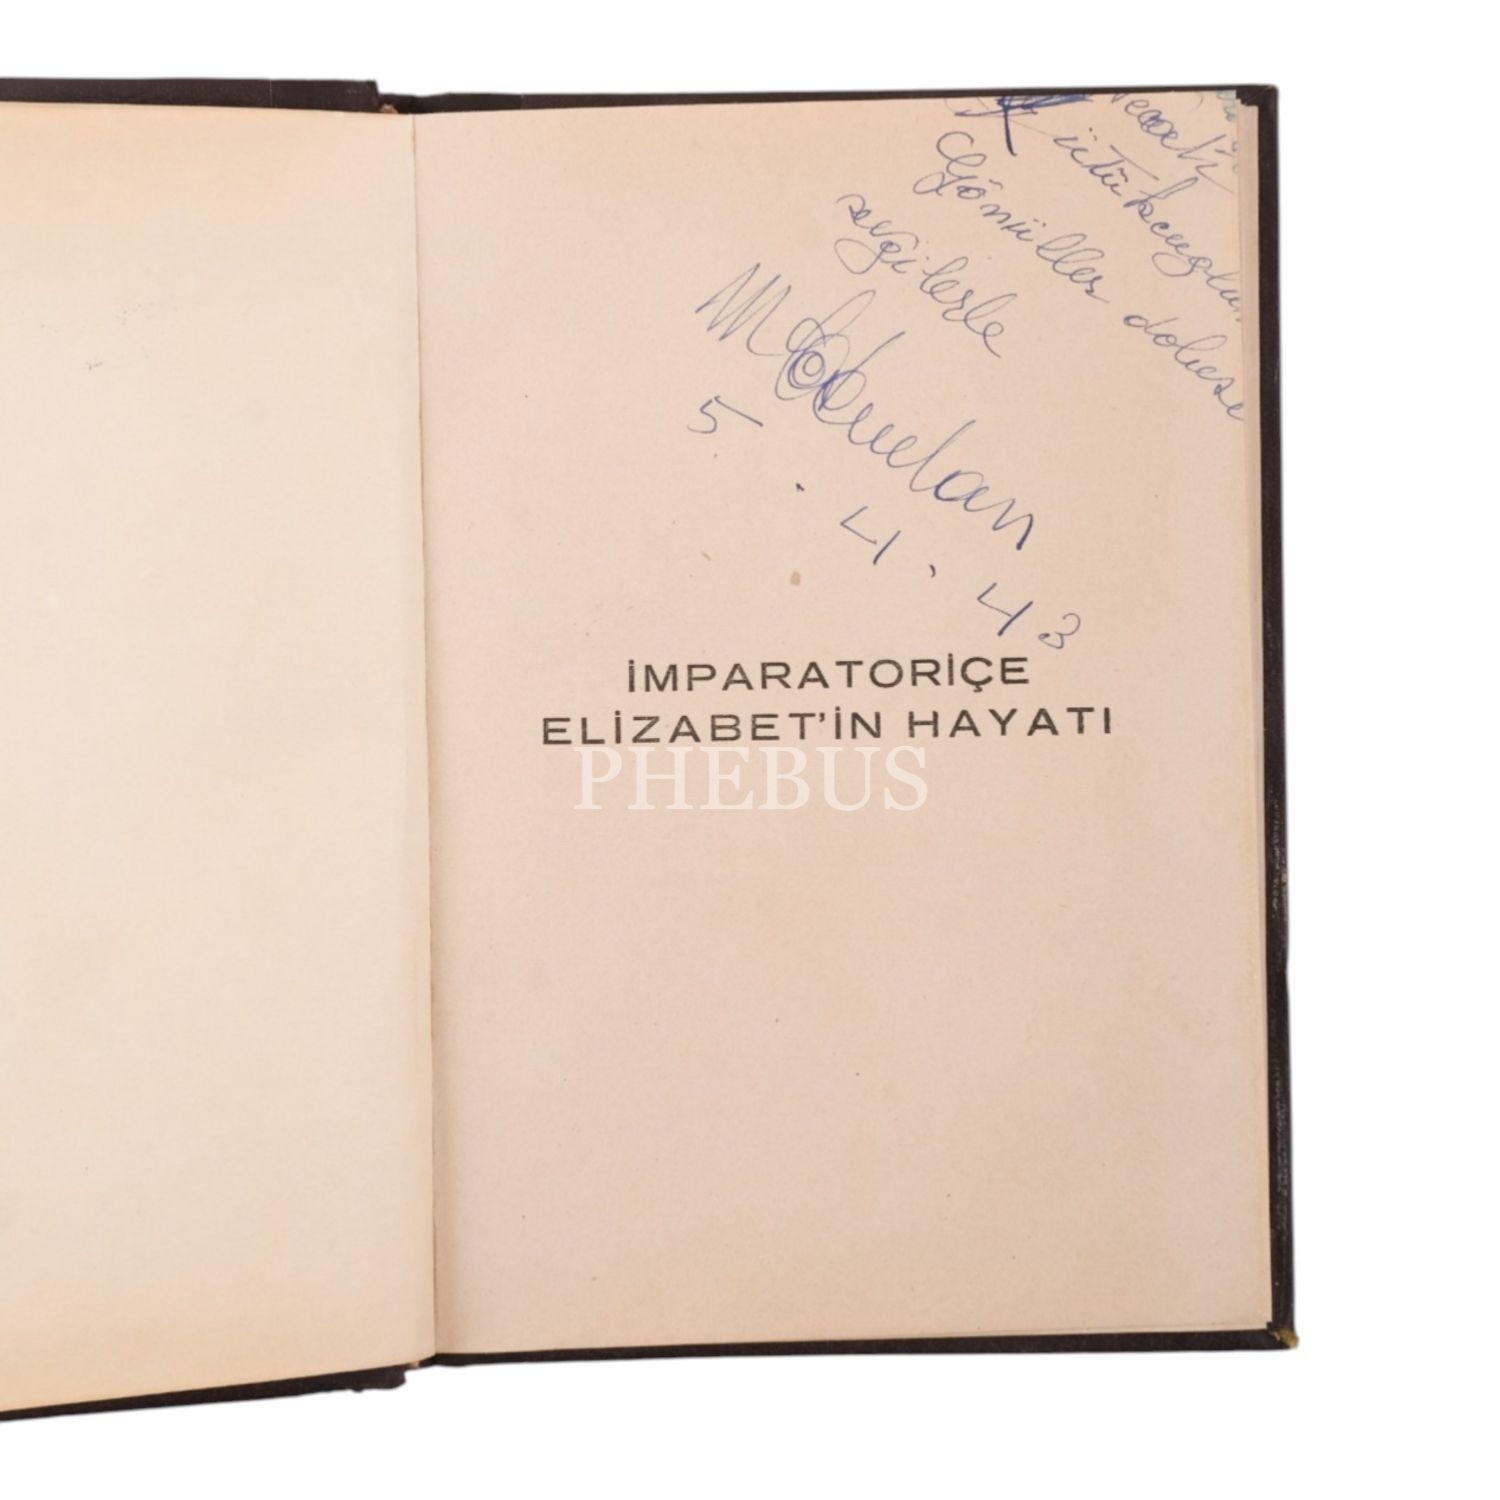 ütükçuoğlun
Gönüller dolusu
sevgilerle
5.4.43
İMPARATORİÇE
ELİZABET'İN HAYATI
PHEBUS